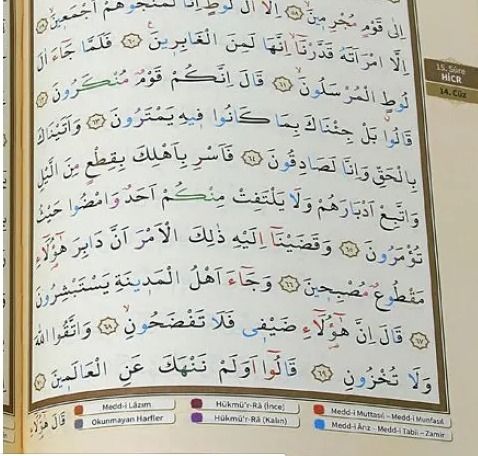 اِلٰى قَوْمٍ مُجْرِمٖينَۙ ﴿٥٨﴾ اِلَّٓا اٰلَ لُوطٍؕ اِنَّا لَمُنَجُّوهُمْ اَجْمَعٖينَۙ ﴿٥٩﴾
اِلَّا امْرَاَتَهُ قَدَّرْنَٓاۙ اِنَّهَا لَمِنَ الْغَابِرٖينَ ﴿٦٠﴾ فَلَمَّا جَٓاءَ اٰلَ
لُوطٍۨ الْمُرْسَلُونَۙ ﴿٦١﴾ قَالَ اِنَّكُمْ قَوْمٌ مُنْكَرُونَ ﴿٦٢﴾
قَالُوا بَلْ جِئْنَاكَ بِمَا كَانُوا فٖيهِ يَمْتَرُونَ ﴿٦٣﴾ وَاَتَيْنَاكَ
بِالْحَقِّ وَاِنَّا لَصَادِقُونَ ﴿٦٤﴾ فَاَسْرِ بِاَهْلِكَ بِقِطْعٍ مِنَ الَّيْلِ
وَاتَّبِعْ اَدْبَارَهُمْ وَلَا يَلْتَفِتْ مِنْكُمْ اَحَدٌ وَامْضُوا حَيْثُ
تُؤْمَرُونَ ﴿٦٥﴾ وَقَضَيْنَٓا اِلَيْهِ ذٰلِكَ الْاَمْرَ اَنَّ دَابِرَ هٰٓؤُلَٓاءِ
مَقْطُوعٌ مُصْبِحٖينَ ﴿٦٦﴾ وَجَٓاءَ اَهْلُ الْمَدٖينَةِ يَسْتَبْشِرُونَ
﴿٦٧﴾ قَالَ اِنَّ هٰٓؤُلَٓاءِ ضَيْفٖى فَلَا تَفْضَحُونِۙ ﴿٦٨﴾ وَاتَّقُوا اللّٰهَ
وَلَا تُخْزُونِ ﴿٦٩﴾ قَالُٓوا اَوَلَمْ نَنْهَكَ عَنِ الْعَالَمٖينَ ﴿٧٠﴾
قَالَ هٰٓؤُلَٓاءِ
15. Sûre
HİCR
14. Cüz
Medd-i Lâzım
Hükmü'r-Râ (İnce)
Medd-i Muttasıl - Medd-i Munfasıl
Okunmayan Harfler
Hükmü'r-Râ (Kalın)
Medd-i Ârız - Medd-i Tabîi - Zamir